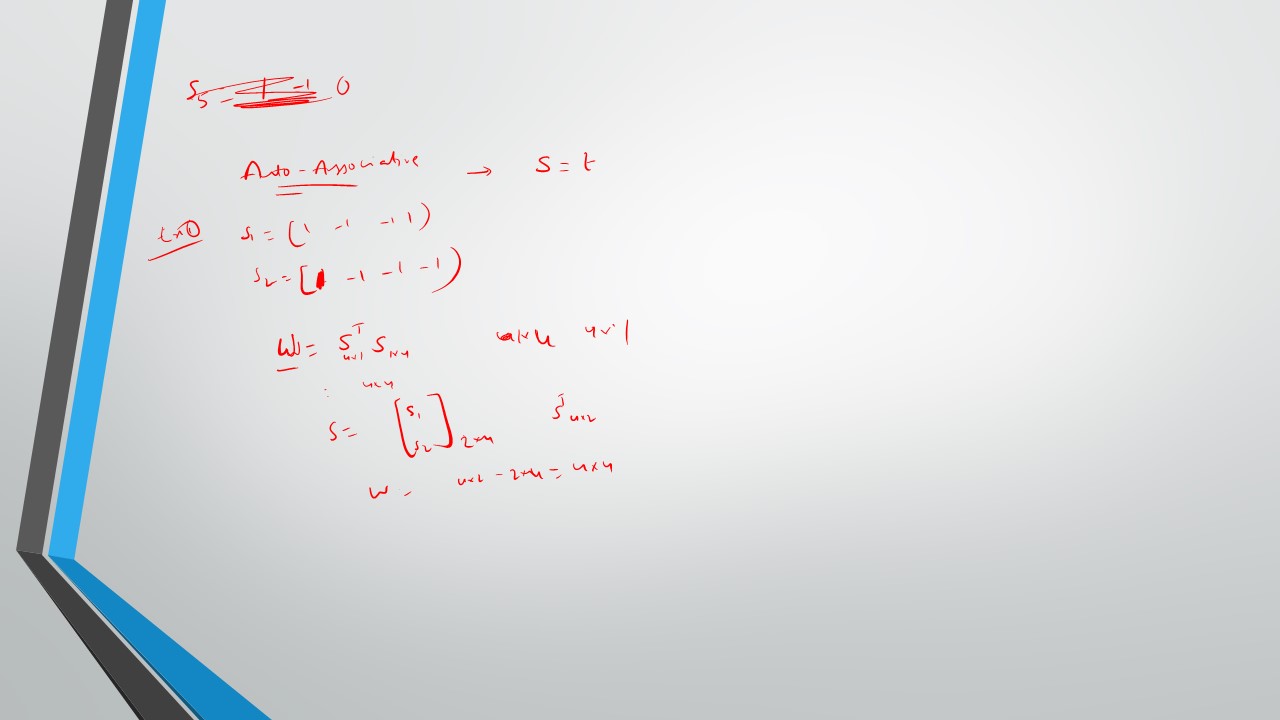 0
Auto-Associative → S = t
Ex① S₁ = [1 -1 -1 1]
S₂ = [1 -1 -1 -1]
W = Sᵀ₄ₓ₁ S₁ₓ₄ 4×1
4×4
S = [S₁ S₂]₂ₓ₄ Sᵀ₄ₓ₂
W = 4×2 - 2×4 = 4×4